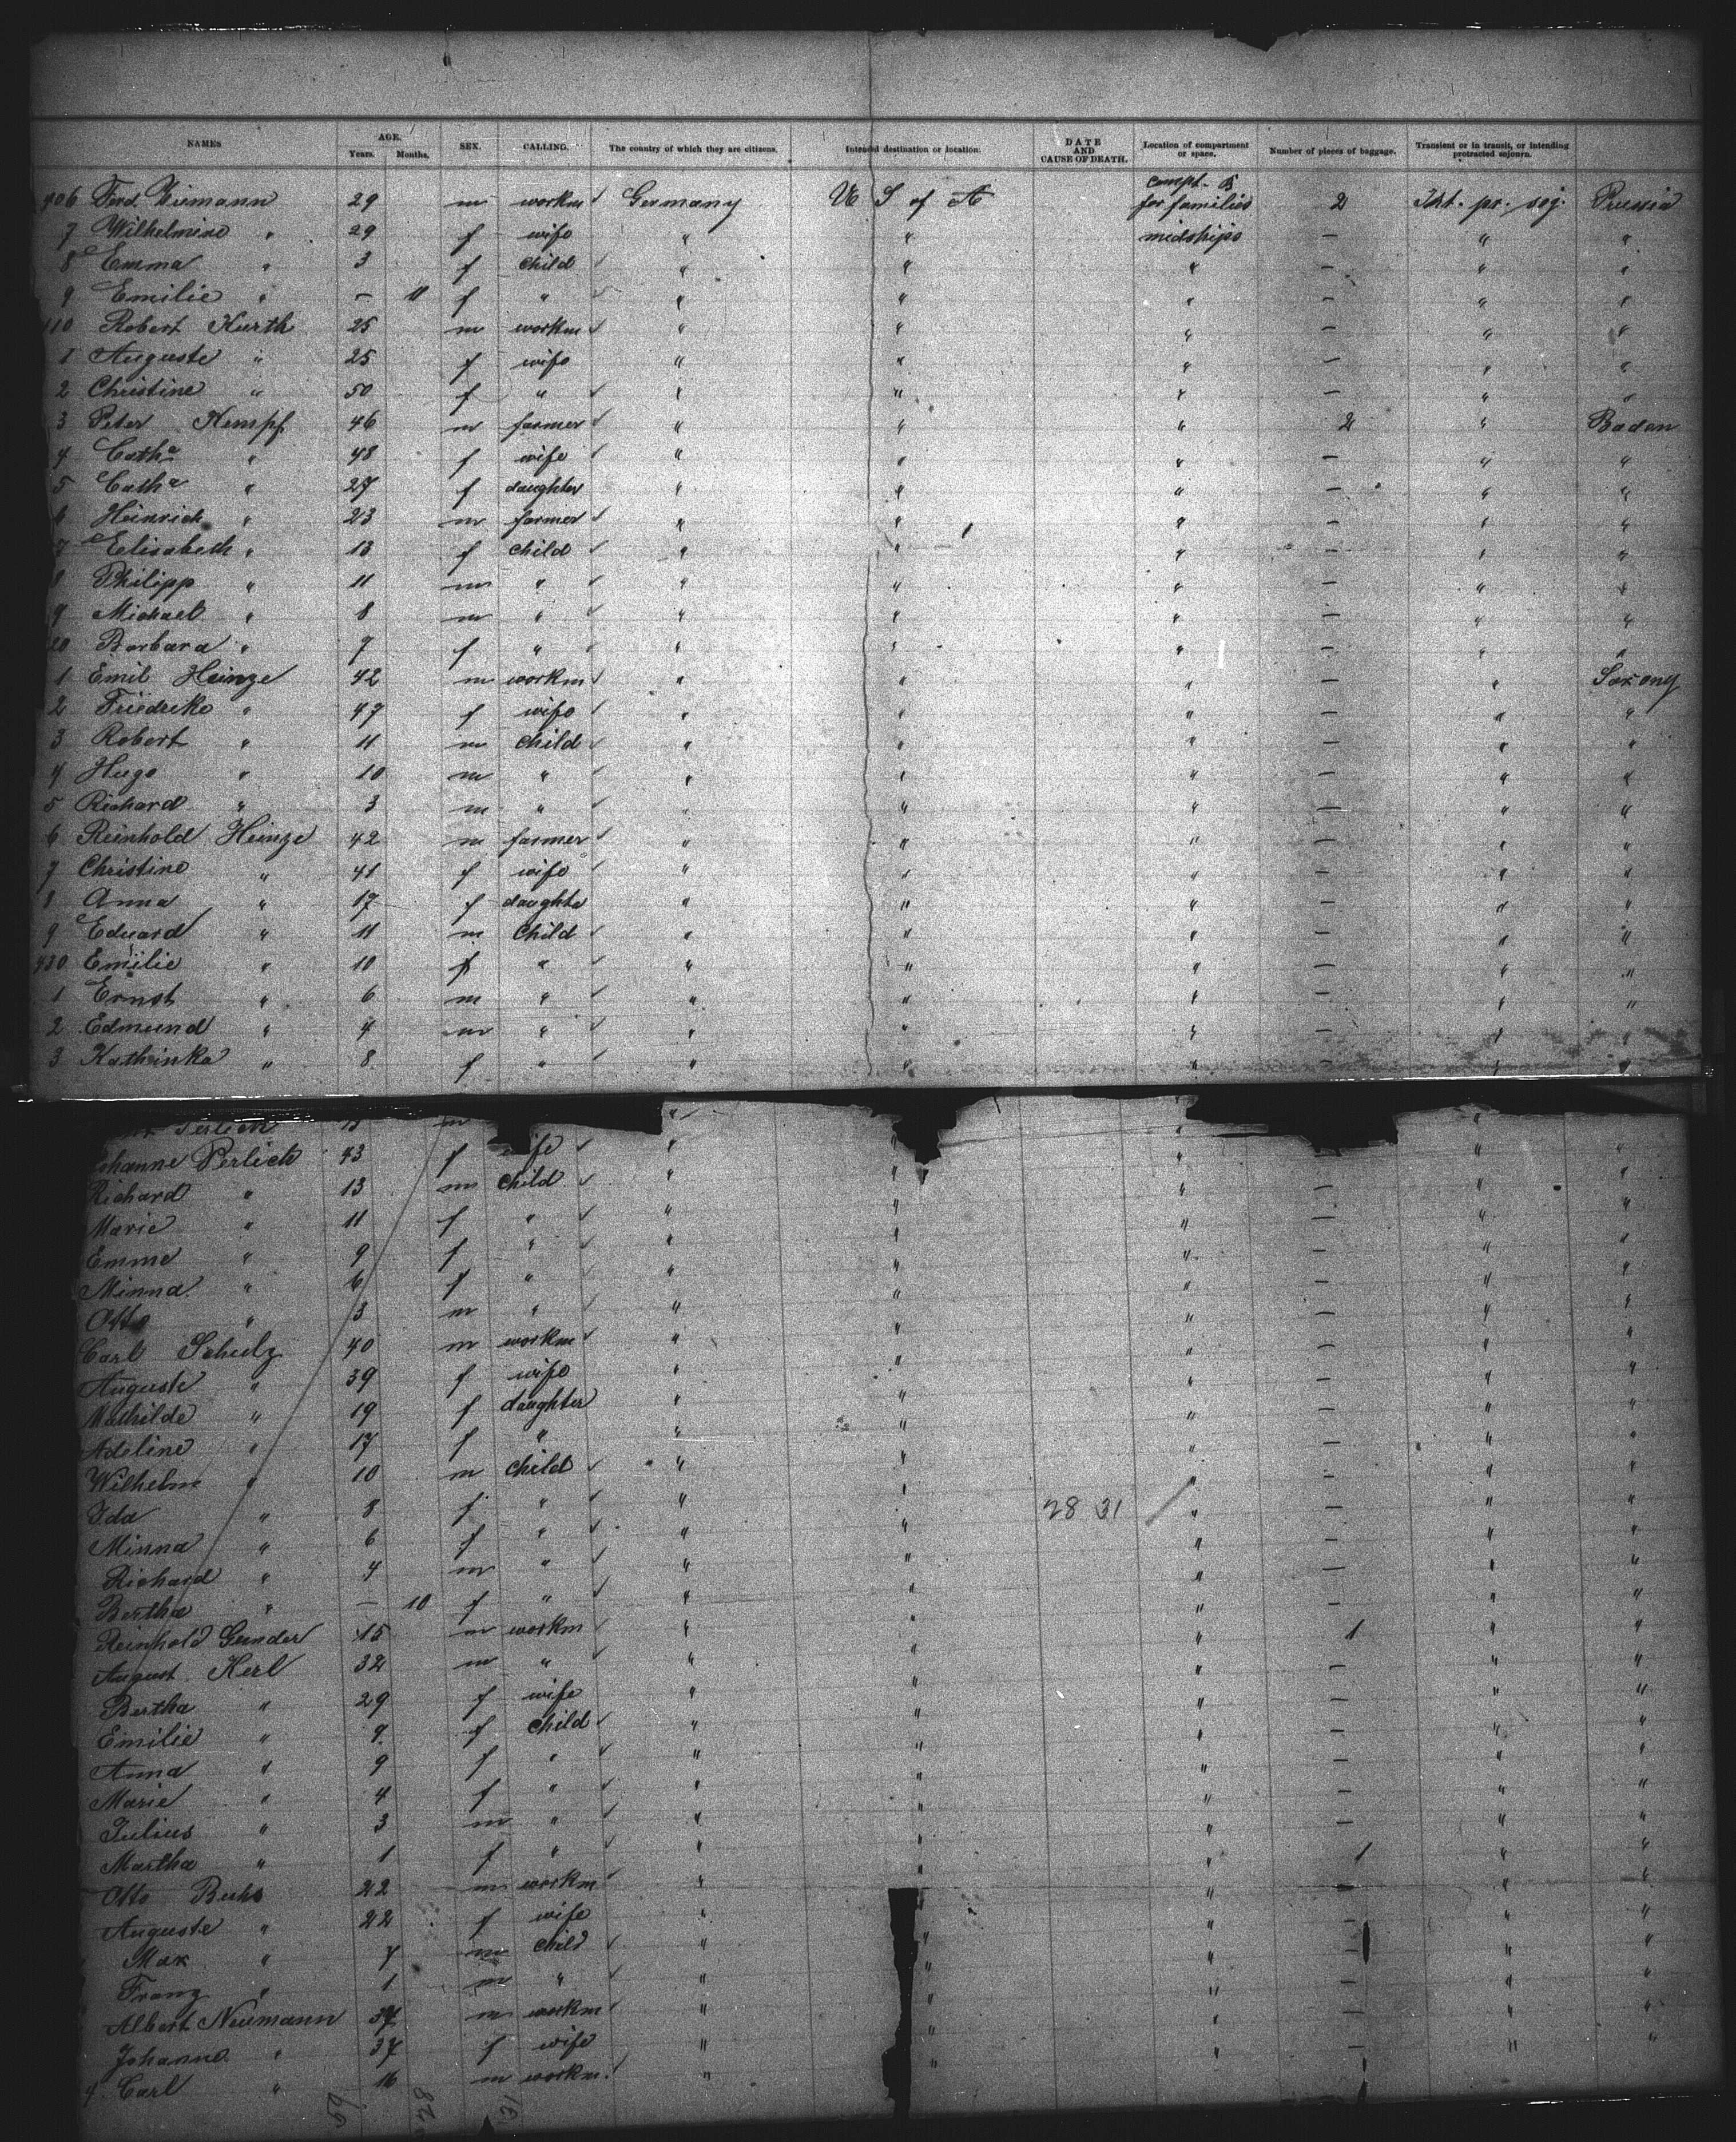 NAMES AGE. Years. Months. SEX. CALLING. The country of which they are citizens. Intended destination or location. DATE AND CAUSE OF DEATH. Location of compartment or space. Number of pieces of baggage. Transient or in transit, or intending protracted sojourn.
406 Ferd. 29 m workm Germany U S of A compt. B for families 2 Prussia
7 Wilhelmine " 29 f wife " " midships — " "
8 Emma " 3 f child " " " — " "
9 Emilie " — 11 f " " " " — " "
410 Robert Kurth 25 m workm " " " — " "
1 Auguste " 25 f wife " " " — " "
2 Christine " 50 f " " " " — " "
3 Peter Kempf 46 m farmer " " " 2 " Baden
4 Catha " 48 f wife " " " — " "
5 Catha " 27 f daughter " " " — " "
6 Heinrich " 23 m farmer " " " — " "
7 Elisabeth " 13 f child " " " — " "
8 Philipp " 11 m " " " " — " "
9 Michael " 8 m " " " " — " "
20 Barbara " 7 f " " " " — " "
1 Emil Heinze 42 m workm " " " — " Saxony
2 Friedrike " 47 f wife " " " — " "
3 Robert " 11 m child " " " — " "
4 Hugo " 10 m " " " " — " "
5 Richard " 3 m " " " " — " "
6 Reinhold Heinze 42 m farmer " " " — " "
7 Christine " 41 f wife " " " — " "
8 Anna " 17 f daughter " " " — " "
9 Eduard " 11 m child " " " — " "
430 Emilie " 10 f " " " " — " "
1 Ernst " 6 m " " " " — " "
2 Edmund " 4 m " " " " — " "
3 Kathinka " 8 f " " " " — " "
Perlich m
Johanne Perlich 43 f wife " " " " "
Richard " 13 m child " " " — " "
Marie " 11 f " " " " — " "
Emma " 9 f " " " " — " "
Minna " 6 f " " " " — " "
Otto " 3 m " " " " — " "
Carl Schulz 40 m workm " " " — " "
Auguste " 39 f wife " " " — " "
Mathilde " 19 f daughter " " " — " "
Adeline " 17 f " " " " — " "
Wilhelm " 10 m child " " " — " "
Ida " 8 f " " " 28 31 " — " "
Minna " 6 f " " " " — " "
Richard " 4 m " " " " — " "
Bertha " — 10 f " " " " — " "
Reinhold Gunder 15 m workm " " " 1 " "
August Kerl 32 m " " " " — " "
Bertha " 29 f wife " " " — " "
Emilie " 9 f child " " " — " "
Anna " 9 f " " " " — " "
Marie " 4 f " " " " — " "
Julius " 3 m " " " " — " "
Martha " 1 f " " " "
Otto 22 m workm " " " 1 " "
Auguste " 22 f wife " " " — " "
Max " m child " " " — " "
Franz " 1 m " " " " — " "
Albert Neumann m workm " " " — " "
Johanne " 37 f wife " " " — " "
4 Carl " 16 m workm. " "
59 28 31